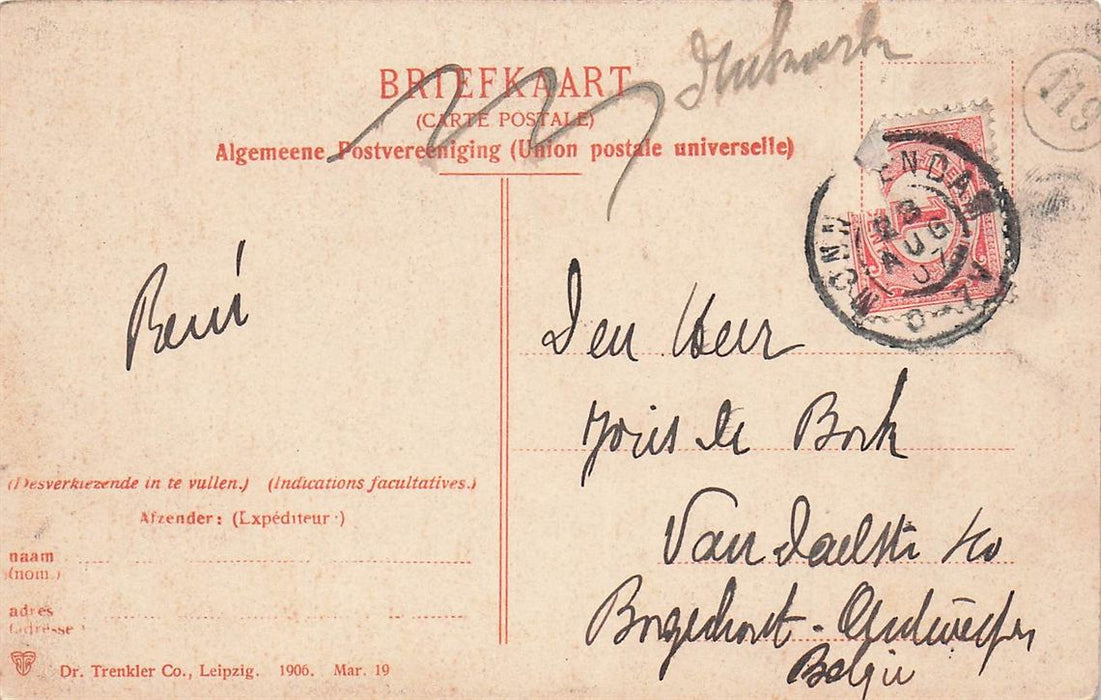 BRIEFKAART
(CARTE POSTALE)
Algemeene Postvereeniging (Union postale universelle)
119
1
28
AUG
07
René
Den Heer
Joris de Bork
Van Daelstr
Borgerhout - Andwerpen
Belgie
(Desverkiezende in te vullen.) (Indications facultatives.)
Afzender: (Expéditeur:)
naam
(nom.)
adres
(adresse
Dr. Trenkler Co., Leipzig. 1906. Mar. 19